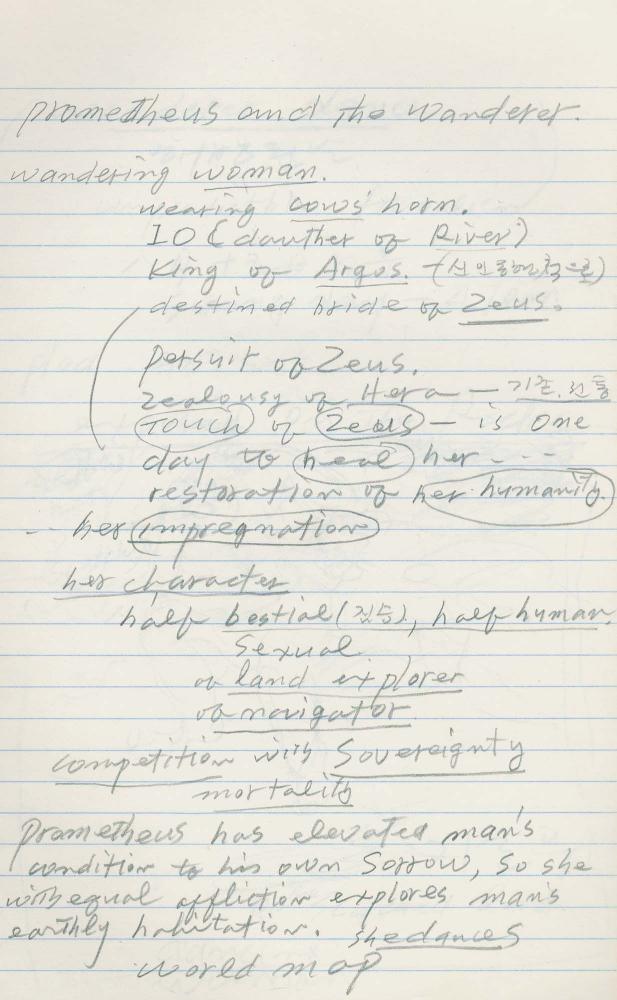 prometheus and the Wanderer.
wandering woman.
wearing cows' horn.
IO (dauther of River)
King of Argos. - (신인동형적으로)
destined bride of Zeus.
persuit of Zeus.
Zealousy of Hera — 기존. 전통
Touch of Zeus — is one
day to heal her ---
restoration of her humanity.
-- her impregnation
her character
half bestial (짐승), half human.
Sexual
of land explorer
of navigator
competition with Sovereignty
mortality
Prometheus has elevated man's
condition to his own Sorrow, so she
with equal affliction explores man's
earthly habitation. she dances
world map